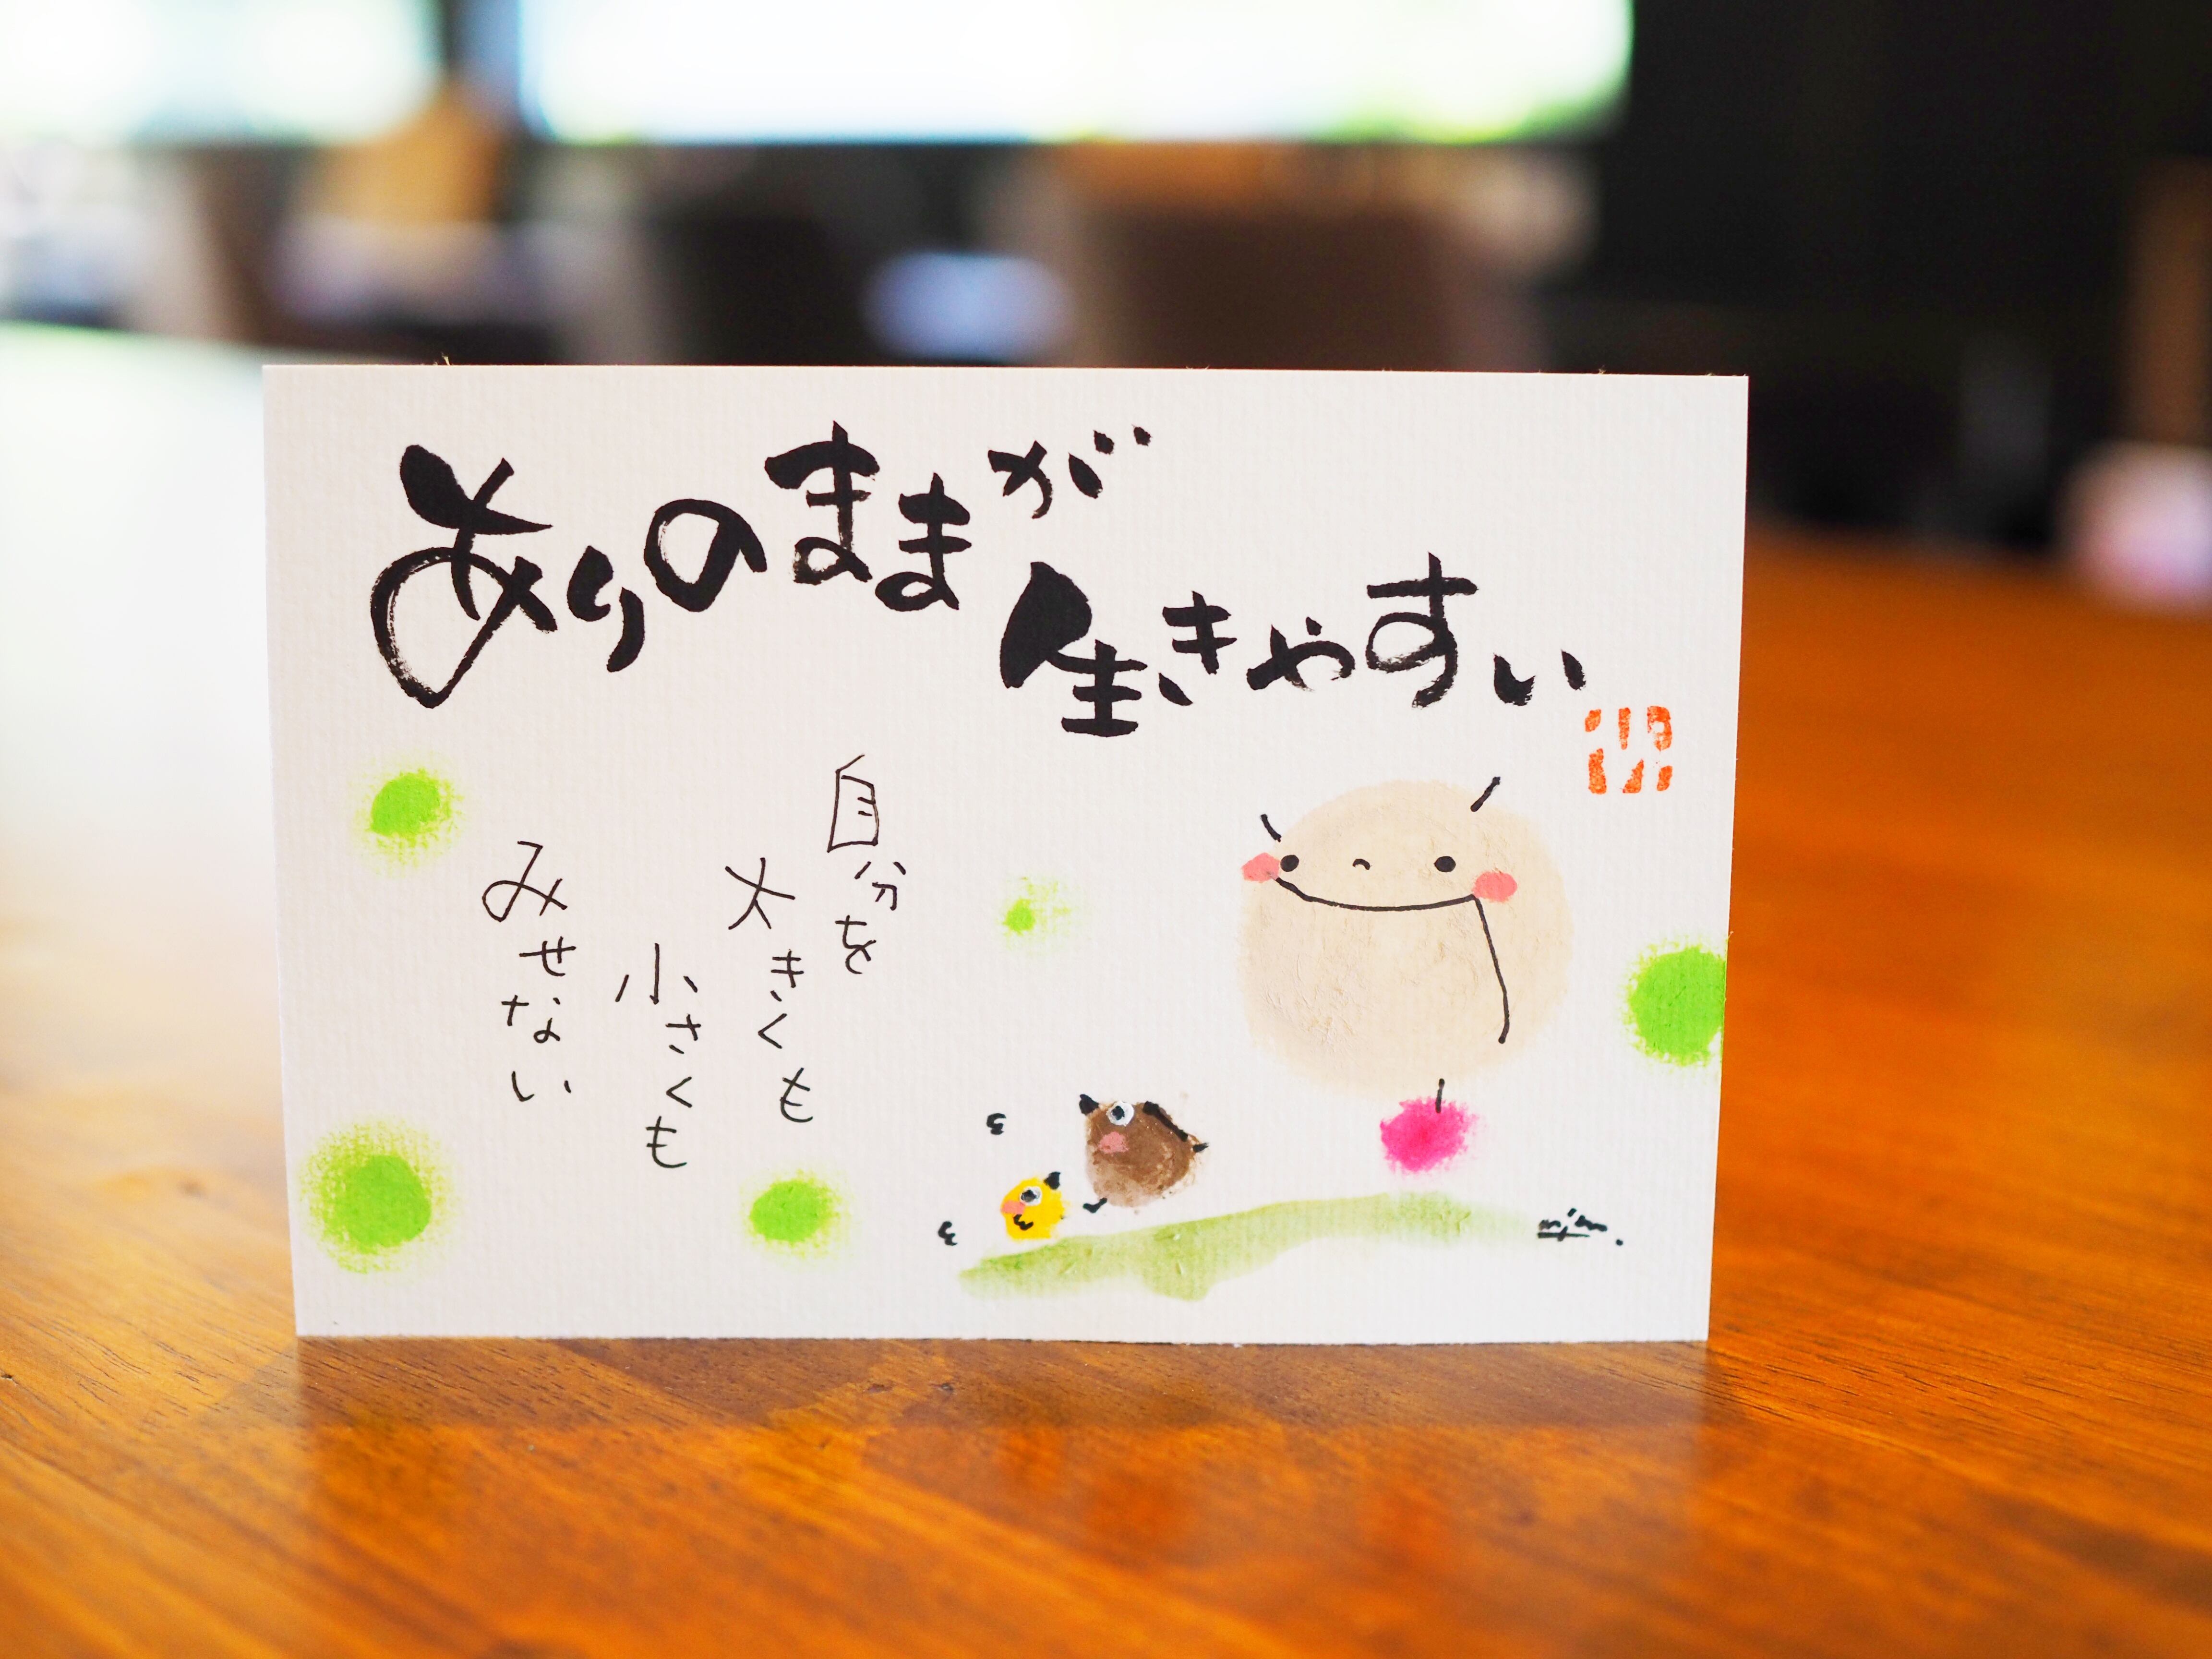 ありのままが
生きやすい
自分を
大きくも
小さくも
みせない